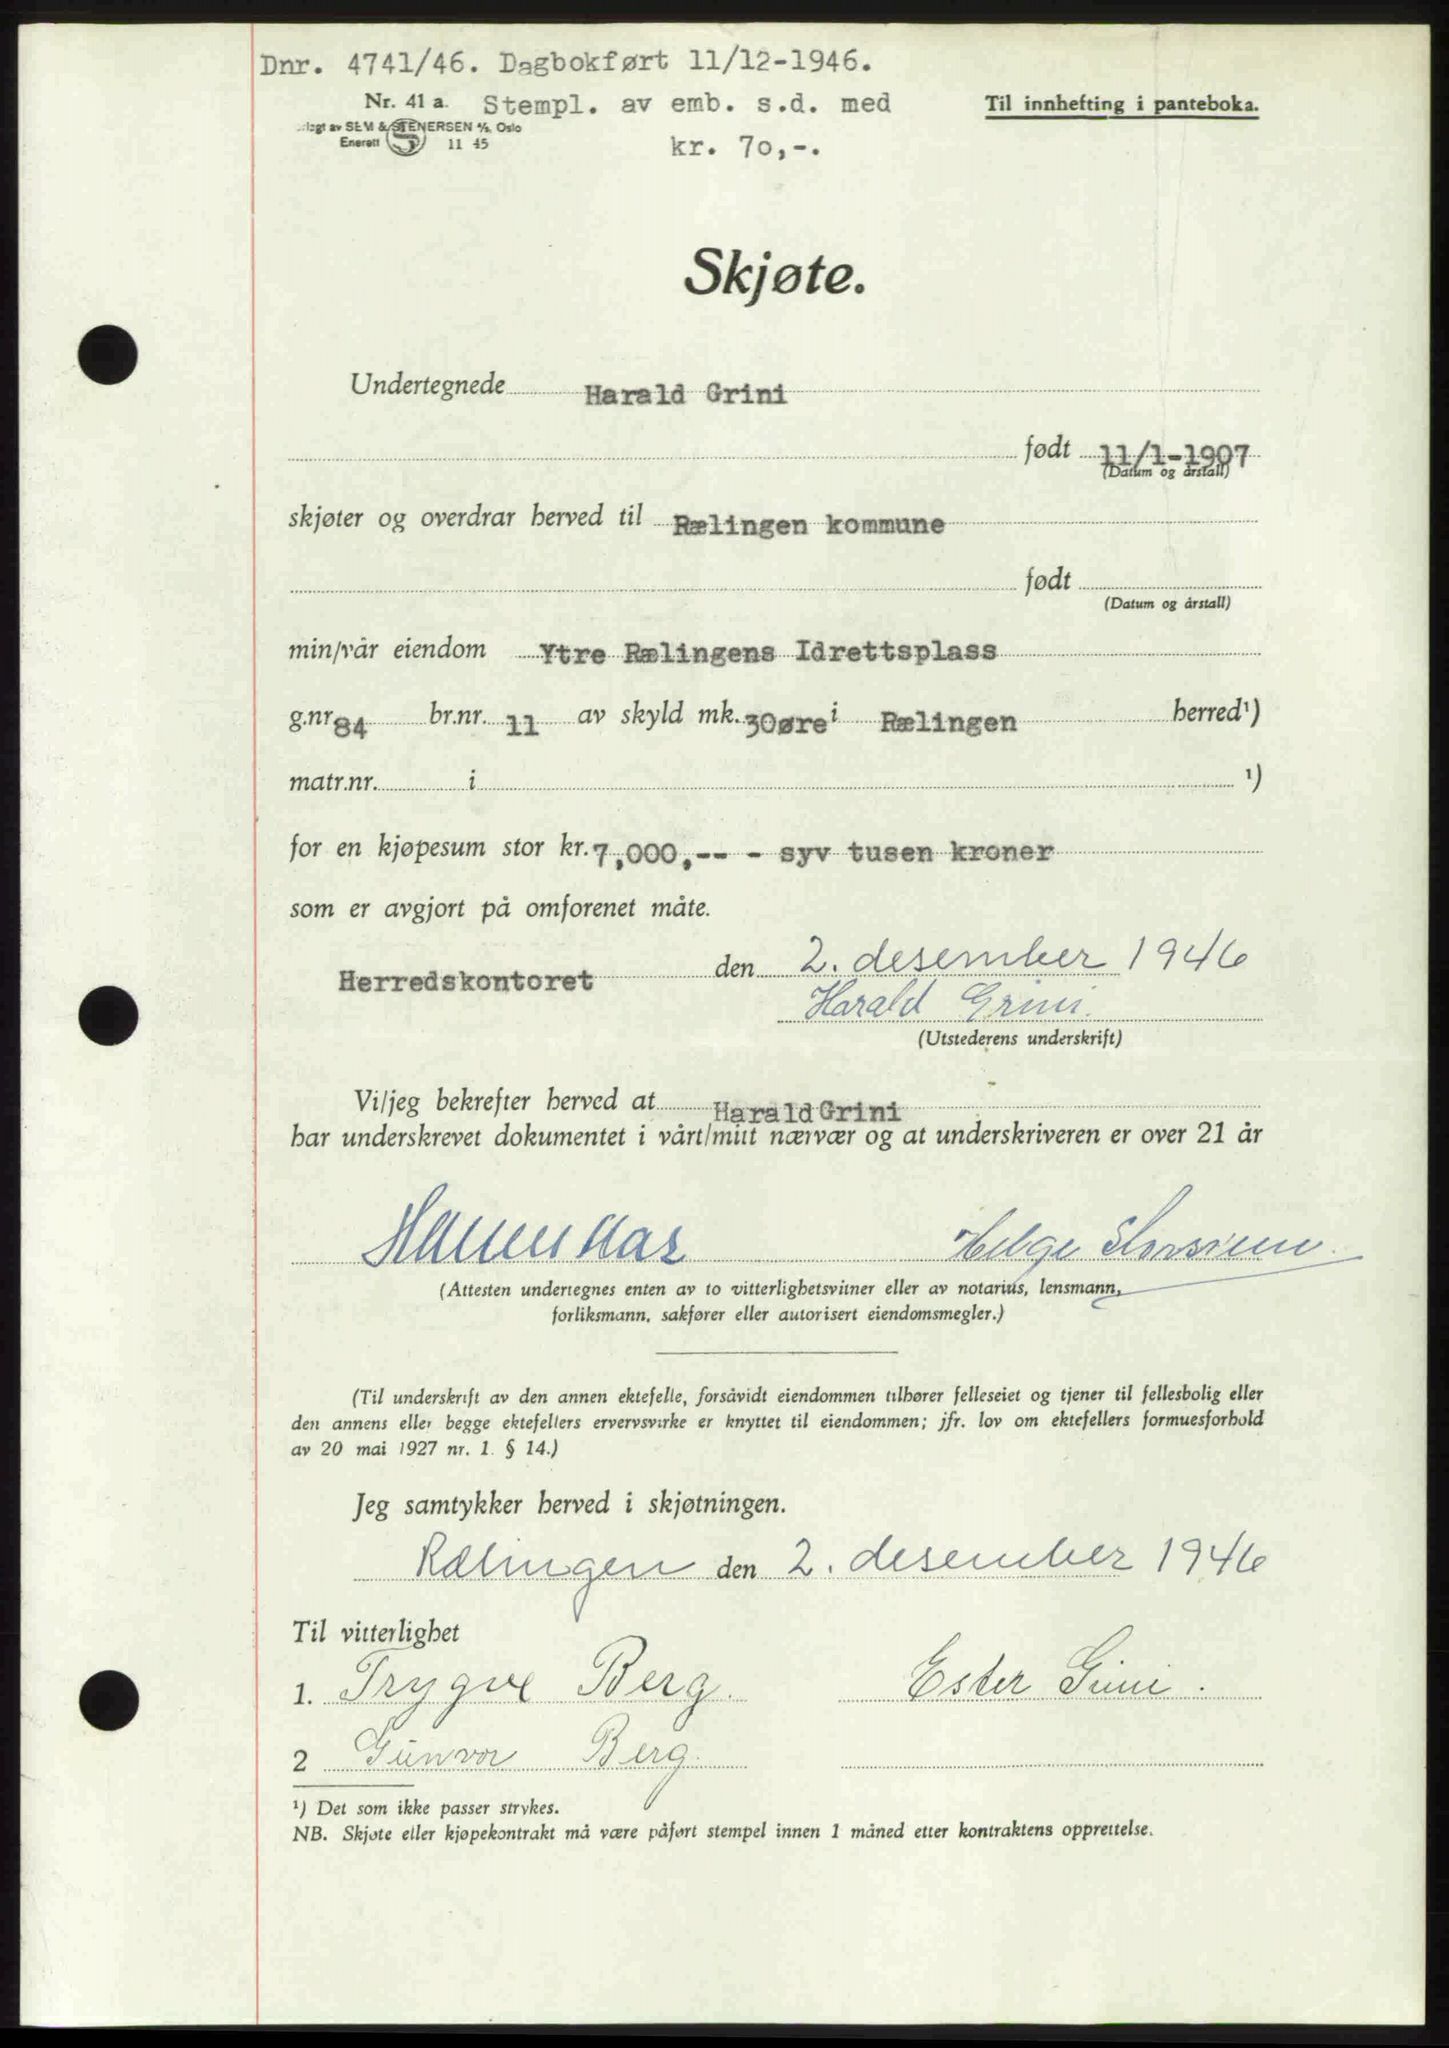 Dnr. 4741/46. Dagbokført 11/12-1946.
Nr. 41 a. Stempl. av emb. s.d. med
Til innhefting i panteboka.
lagt av SEM & STENERSEN A/S, Oslo
Enerett 11 45
kr. 70,-.
Skjøte.
Undertegnede Harald Grini
født 11/1-1907
(Datum og årstall)
skjøter og overdrar herved til Rælingen kommune
født
(Datum og årstall)
min/vår eiendom Ytre Rælingens Idrettsplass
g.nr. 84 br.nr. 11 av skyld mk. 30øre i Rælingen herred¹)
matr.nr. i ¹)
for en kjøpesum stor kr. 7,000,-- - syv tusen kroner
som er avgjort på omforenet måte.
Herredskontoret den 2. desember 1946
Harald Grini.
(Utstederens underskrift)
Vi/jeg bekrefter herved at Harald Grini
har underskrevet dokumentet i vårt/mitt nærvær og at underskriveren er over 21 år
Helge
(Attesten undertegnes enten av to vitterlighetsvitner eller av notarius, lensmann,
forliksmann, sakfører eller autorisert eiendomsmegler.)
(Til underskrift av den annen ektefelle, forsåvidt eiendommen tilhører felleseiet og tjener til fellesbolig eller
den annens eller begge ektefellers ervervsvirke er knyttet til eiendommen; jfr. lov om ektefellers formuesforhold
av 20 mai 1927 nr. 1. § 14.)
Jeg samtykker herved i skjøtningen.
Rælingen den 2. desember 1946
Til vitterlighet
1. Trygve Berg. Ester Grini.
2 Gunvor Berg.
¹) Det som ikke passer strykes.
NB. Skjøte eller kjøpekontrakt må være påført stempel innen 1 måned etter kontraktens opprettelse.